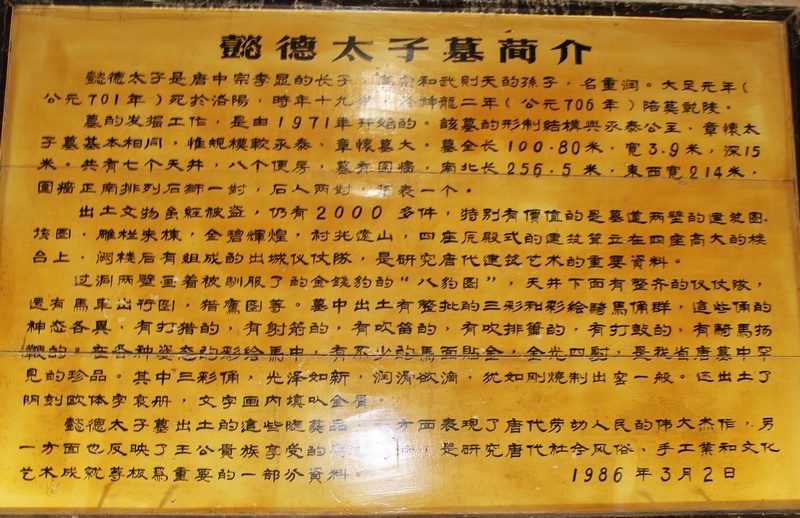 懿德太子墓简介
懿德太子是唐中宗李显的长子,高宗和武则天的孫子,名重润。大足元年(
公元701年)死於洛陽,時年十九岁,神龍二年(公元706年)陪葵乾陵。
墓的发掘工作,是由1971年开始的。該墓的形制結構與永泰公主、章懷太
子墓基本相同,惟規模較永泰、章懷墓大。墓全长100.80米,宽3.9米,深15
米。共有七个天井,八个便房,墓有围墻,南北长256.5米,東西宽214米.
圍墻正南排列石獅一對,石人两對,表一个。
出土文物虽經被盗,仍有2000多件,特别有價值的是墓道两壁的建筑图.
找图,雕栏朱棟,金碧輝煌,衬托遠山,四座廡殿式的建筑耸立在四座高大的楼
台上,闕楼后有組成的出城仪仗隊,是研究唐代建筑艺术的重要資料。
过洞两壁画着被馴服了的金錢豹的“八豹图”,天井下面有整齐的仪仗隊,
還有馬車出行图,猎鷹图等。墓中出土有整批的三彩和彩绘騎馬俑群,這些俑的
神态各異,有打猎的,有射箭的,有吹笛的,有吹排簫的,有打鼓的,有騎馬扬
鞭的。在各种姿态的彩绘馬中,有不少的馬面貼金,金光四射,是我省唐墓中罕
見的珍品。其中三彩俑,光泽如新,润滑欲滴,犹如刚烧制出窑一般。还出土了
阴刻欧体字哀册,文字画内填以金屑。
懿德太子墓出土的這些随葵品方面表現了唐代劳动人民的伟大杰作,另
一方面也反映了王公貴族享受的是研究唐代社会风俗、手工業和文化
艺术成就等极爲重要的一部分資料。 1986年3月2日